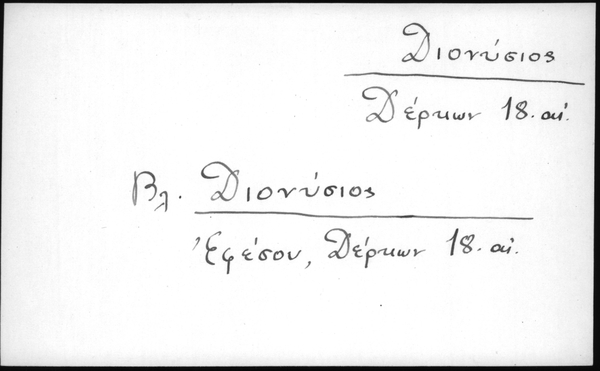 Διονύσιος
Δέρκων 18. αἰ.
Βλ. Διονύσιος
Ἐφέσου, Δέρκων 18. αἰ.